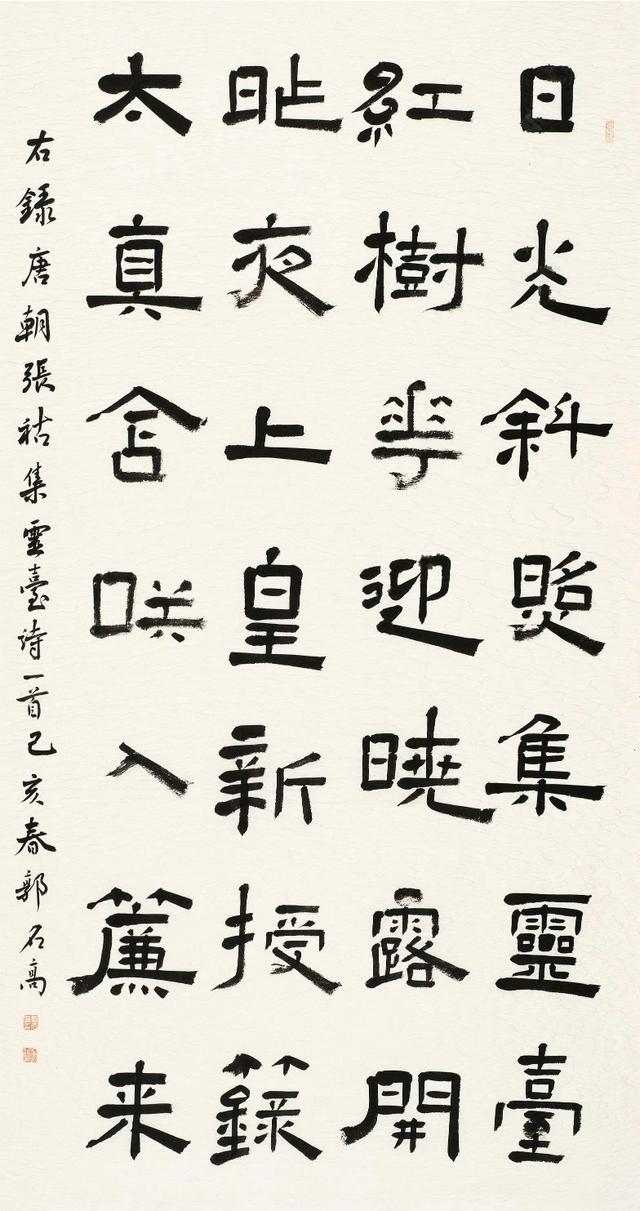 日光斜照集靈臺
紅樹華迎曉露開
昨夜上皇新授籙
太真含咲入簾来
右録唐朝張祜集靈臺詩一首己亥春郭石高